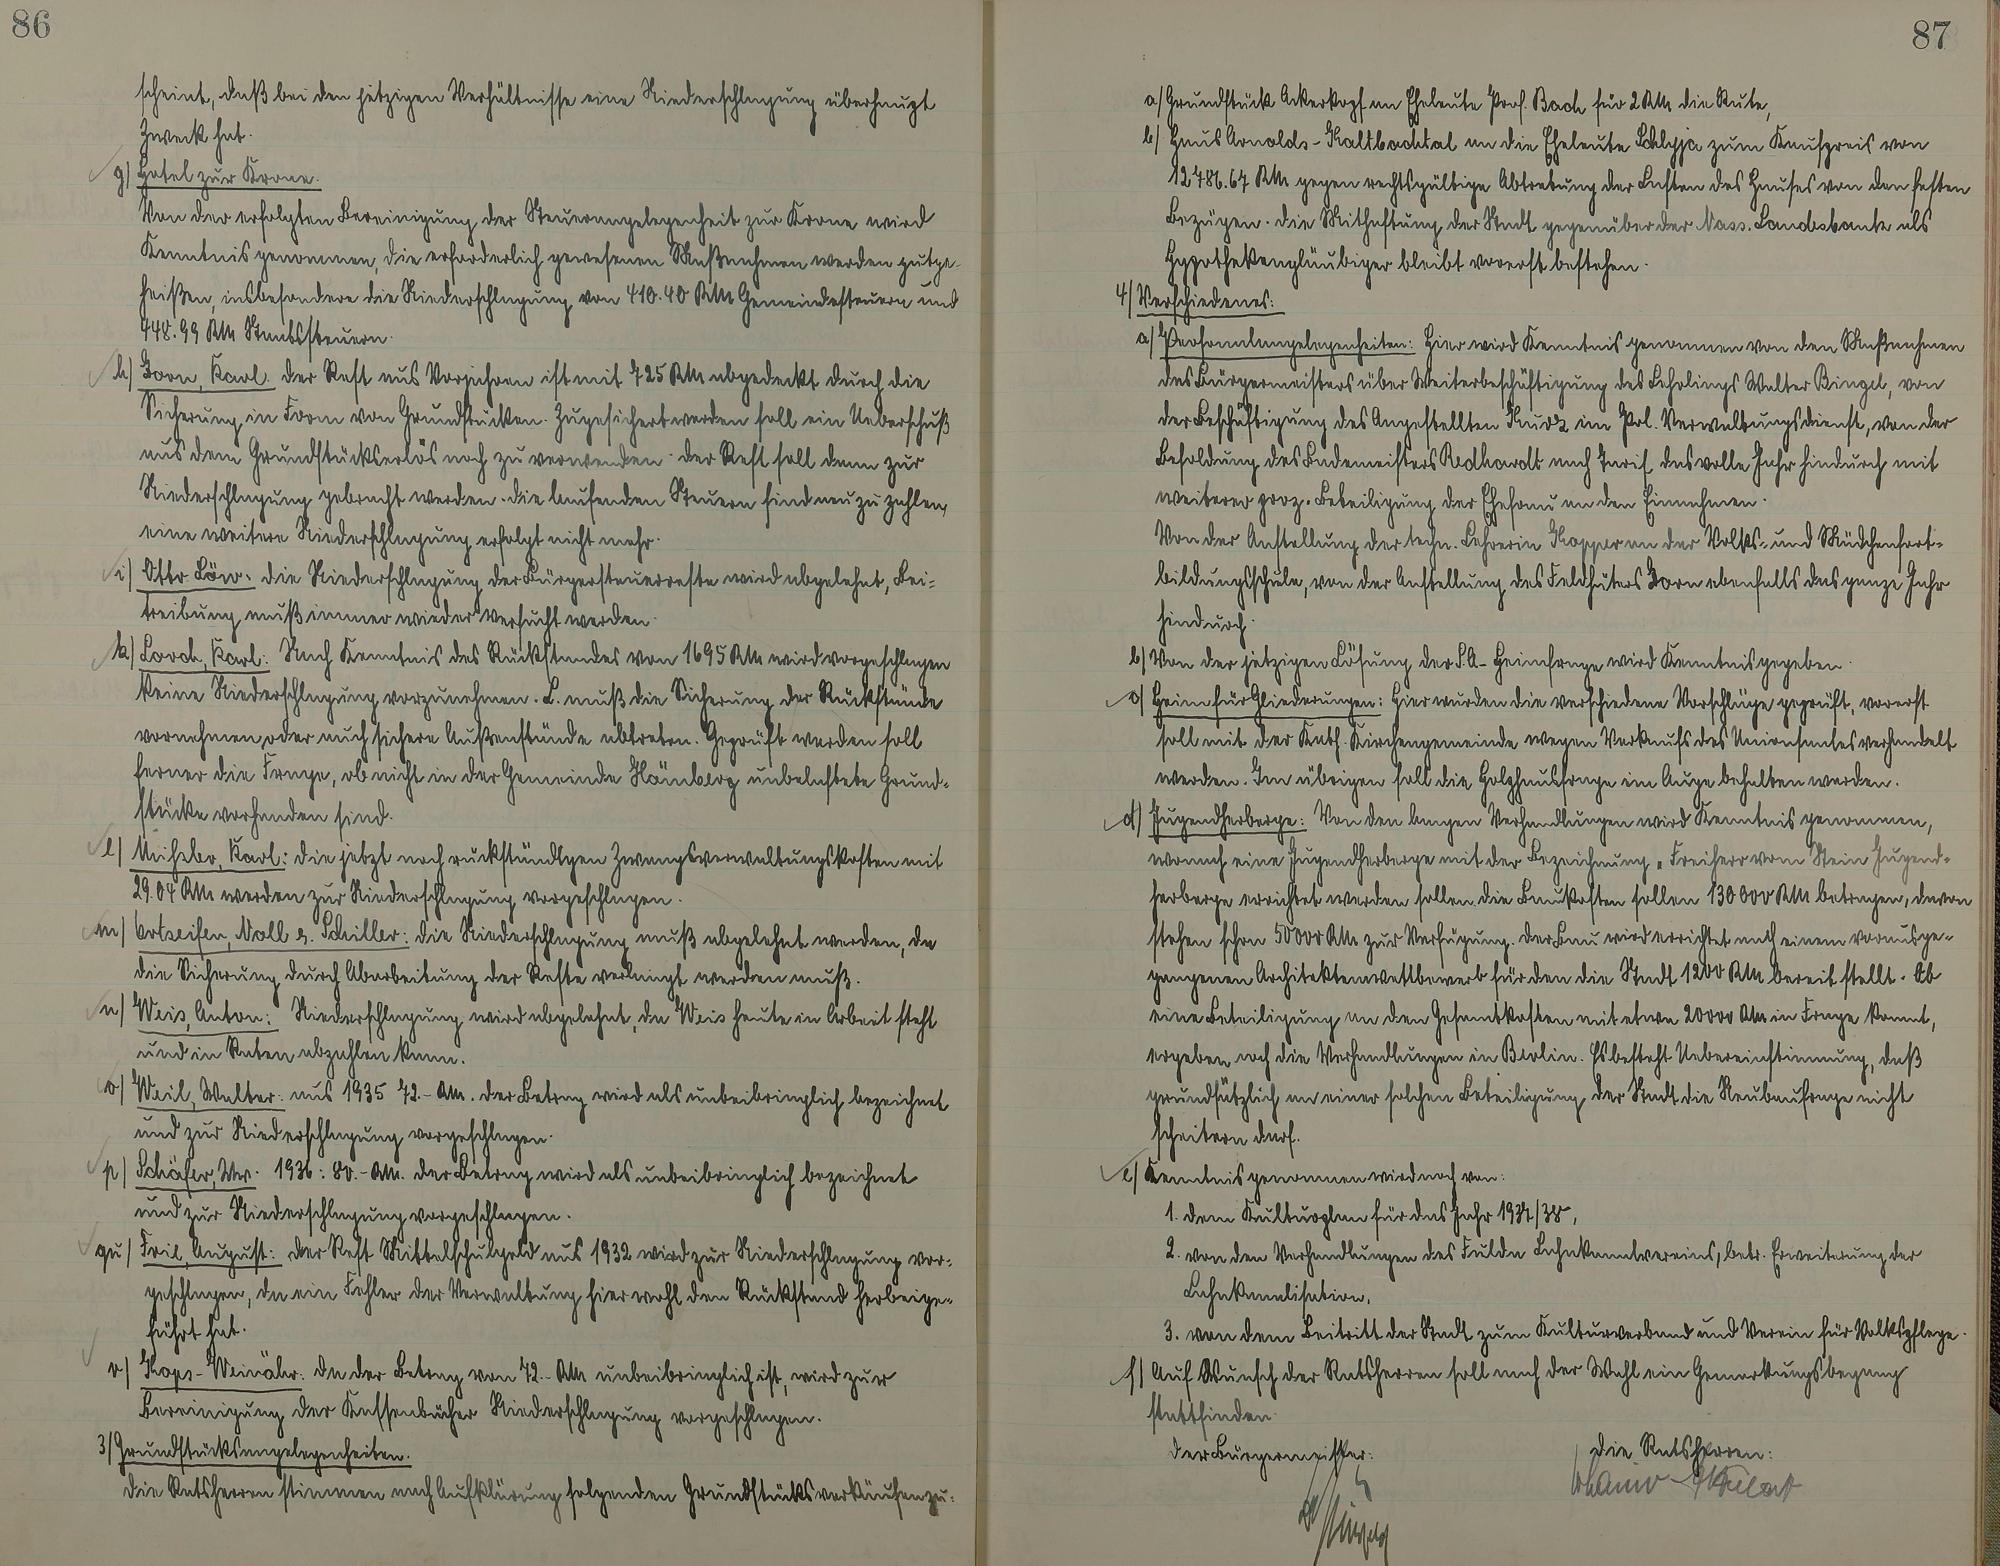 86
scheint, daß bei den jetzigen Verhältnisse eine Niederschlagung überhaupt
Zweck hat.
g) Hotel zur Krone.
Von der erfolgten Bereinigung der Steuerangelegenheit zur Krone wird
Kenntnis genommen, die erforderlich gewesenen Maßnahmen werden gutge-
heißen, insbesondere die Niederschlagung von 410.40 RM Gemeindesteuern und
448.99 RM Staatssteuern.
h) Zorn, Karl. Der Rest aus Vorjahren ist mit 725 RM abgedeckt durch die
Sicherung in Form von Grundstücken. Zugesichert werden soll ein Ueberschuß
aus dem Grundstückserlös noch zu verwenden. Der Rest soll dann zur
Niederschlagung gebracht werden. Die laufenden Steuern sind neu zu zahlen,
eine weitere Niederschlagung erfolgt nicht mehr.
i) Otto Löw: Die Niederschlagung der Bürgersteuerreste wird abgelehnt, Bei-
treibung muß immer wieder versucht werden.
k) Lorch, Karl: Nach Kenntnis des Rückstandes von 1695 RM wird vorgeschlagen
keine Niederschlagung vorzunehmen. L. muß die Sicherung der Rückstände
vornehmen oder auch sichere Außenstände abtreten. Geprüft werden soll
ferner die Frage, ob nicht in der Gemeinde Hömberg unbelastete Grund-
stücke vorhanden sind.
l) Karl: Die jetzt noch rückständigen Zwangsverwaltungskosten mit
29.04 RM werden zur Niederschlagung vorgeschlagen.
m) Ortseifen, Noll u. Schiller: Die Niederschlagung muß abgelehnt werden, da
die Sicherung durch Abarbeitung der Reste verlangt werden muß.
n) Weis, Anton: Niederschlagung wird abgelehnt, da Weis heute in Arbeit steht
und in Raten abzahlen kann.
o) Weil, Walter: aus 1935 72.- RM. Der Betrag wird als unbeibringlich bezeichnet
und zur Niederschlagung vorgeschlagen.
p) Schäfer, Ww. 1936: 80.- RM. Der Betrag wird als unbeibringlich bezeichnet
und zur Niederschlagung vorgeschlagen.
qu) August: Der Rest Mittelschulgeld aus 1932 wird zur Niederschlagung vor-
geschlagen, da ein Fehler der Verwaltung hier wohl den Rückstand herbeige-
führt hat.
r) Kops-Weinähr: Da der Betrag von 72.- RM unbeibringlich ist, wird zur
Bereinigung der Kassenbücher Niederschlagung vorgeschlagen.
3) Grundstücksangelegenheiten.
Die Ratsherren stimmen nach Aufklärung folgenden Grundstücksverkäufen zu:
87
a) Grundstück Ackerkopf an Eheleute Prof. Bach für 2 RM die Rute,
b) Haus Arnolds-Kaltbachtal an die Eheleute zum Kaufpreis von
12786.67 RM gegen rechtsgültige Abtretung der Lasten des Hauses von den festen
Bezügen. Die Mithaftung der Stadt gegenüber der Nass. Landesbank als
Hypothekengläubiger bleibt vorerst bestehen.
4) Verschiedenes:
a) Personalangelegenheiten: Hier wird Kenntnis genommen von den Maßnahmen
des Bürgermeisters über Weiterbeschäftigung des Lehrlings Walter Bingel, von
der Beschäftigung des Angestellten Kurz im Pol. Verwaltungsdienst, von der
Besoldung des Bademeisters Redhardt nach Tarif, das volle Jahr hindurch mit
weiterer proz. Beteiligung der Ehefrau an den Einnahmen.
Von der Anstellung der techn. Lehrerin Kopper an der Volks- und Mädchenfort-
bildungsschule, von der Anstellung des Feldhüters Zorn ebenfalls das ganze Jahr
hindurch.
b) Von der jetzigen Lösung der S.A.-Heimfrage wird Kenntnis gegeben.
c) Heim für Gliederungen: Hier wurden die verschiedene Vorschläge geprüft, vorerst
soll mit der Kath. Kirchengemeinde wegen Verkaufs des Unionsaales verhandelt
werden. Im übrigen soll die Holzhausfrage im Auge behalten werden.
d) Jugendherberge: Von den langen Verhandlungen wird Kenntnis genommen,
wonach eine Jugendherberge mit der Bezeichnung „Freiherr vom Stein Jugend-
herberge errichtet werden sollen. Die Baukosten sollen 130000 RM betragen, davon
stehen schon 50000 RM zur Verfügung. Der Bau wird errichtet nach einem vorausge-
gangenen Architektenwettbewerb für den die Stadt 1200 RM bereit stellt. Ob
eine Beteiligung an den Gesamtkosten mit etwa 20000 RM in Frage kommt,
ergeben noch die Verhandlungen in Berlin. Es besteht Uebereinstimmung, daß
grundsätzlich an einer solchen Beteiligung der Stadt die Neubaufrage nicht
scheitern darf.
e) Kenntnis genommen wird noch von:
1. dem Kulturplan für das Jahr 1937/38,
2. von den Verhandlungen des Fulda Lahnkanalvereins, betr. Erweiterung der
Lahnkanalisation,
3. von dem Beitritt der Stadt zum Kulturverband und Verein für Volkspflege.
f) Auf Wunsch der Ratsherren soll nach der Wahl ein Gemarkungsbegang
stattfinden.
Der Bürgermeister:
Die Ratsherren: